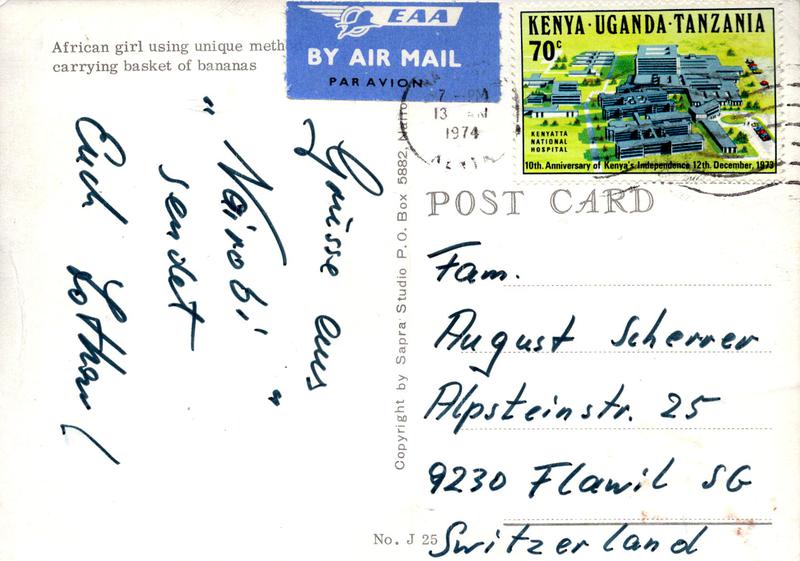 African girl using unique
carrying basket of bananas
EAA
BY AIR MAIL
PAR AVION
KENYA·UGANDA·TANZANIA
70c
KENYATTA
NATIONAL
HOSPITAL
10th. Anniversary of Kenya's Independence 12th. December, 1973
PM
13
1974
Grüsse aus
"Nairobi"
sendet
Euch Lothar!
Copyright by Sapra Studio P. O. Box 5882,
POST CARD
Fam.
August Scherrer
Alpsteinstr. 25
9230 Flawil SG
Switzerland
No. J 25